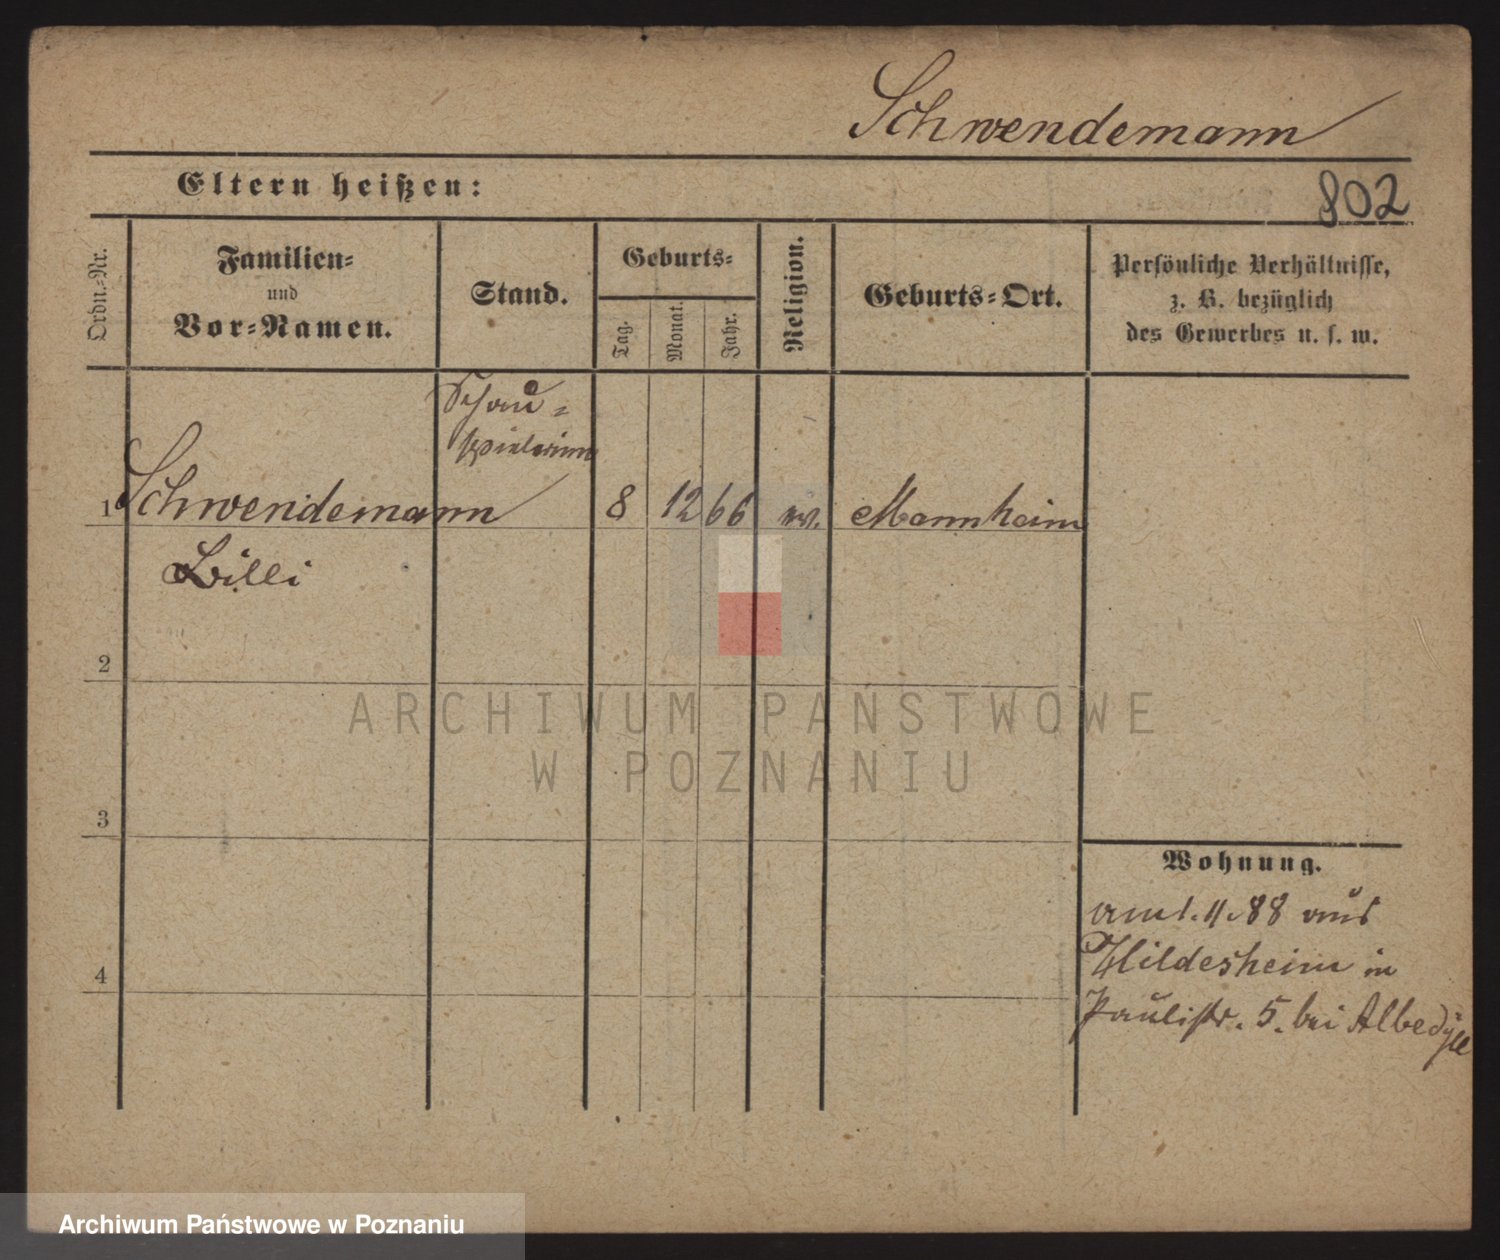 Schwendemann
Eltern heißen:
802
Ordn.-Nr.
Familien-
und
Vor-Namen.
Stand.
Geburts-
Tag.
Monat.
Jahr.
Religion.
Geburts-Ort.
Persönliche Verhältnisse,
z. B. bezüglich
des Gewerbes u. s. w.
Schau-
spielerin
1 Schwendemann 8 12 66 ev. Mannheim
Lilli
2
3
4
Wohnung.
am 1. 11. 88 aus
Hildesheim in
Paulistr. 5. bei Albedyll
ARCHIWUM PAŃSTWOWE
W POZNANIU
Archiwum Państwowe w Poznaniu